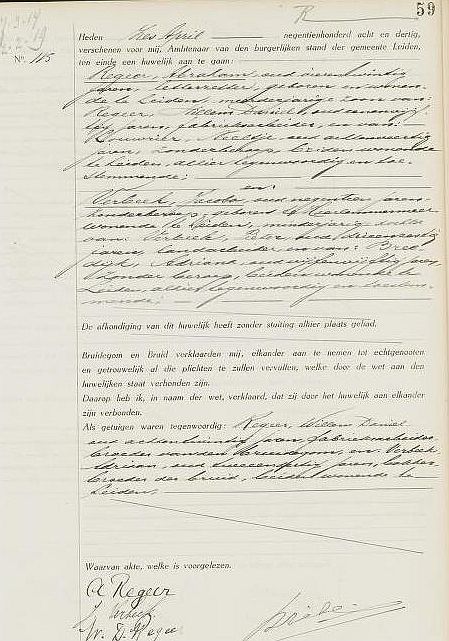 59
R
Heden Zes April negentienhonderd acht en dertig,
verschenen voor mij, Ambtenaar van den burgerlijken stand der gemeente Leiden,
ten einde een huwelijk aan te gaan:
No. 115
Regeer, Abraham, oud
jaren, letterzetter, geboren en wonen-
de te Leiden, meerderjarige zoon van:
Regeer, Willem Daniel, oud
jaren, fabrieksarbeider, en van:
oud achtenveertig
jaren, zonder beroep, beiden wonende
te Leiden, alhier tegenwoordig en toe-
stemmende;
en:
Verbeek, Jacoba, oud negentien jaren,
zonder beroep, geboren te Haarlemmermeer
wonende te Leiden, minderjarige dochter
van: Verbeek, oud
jaren, en van: Bree-
dijk, Adriana oud vijfenvijftig jaren,
zonder beroep, beiden wonende te
Leiden, alhier tegenwoordig en toestem-
mende;
De afkondiging van dit huwelijk heeft zonder stuiting alhier plaats gehad.
Bruidegom en Bruid verklaarden mij, elkander aan te nemen tot echtgenooten
en getrouwelijk al die plichten te zullen vervullen, welke door de wet aan den
huwelijken staat verbonden zijn.
Daarop heb ik, in naam der wet, verklaard, dat zij door het huwelijk aan elkander
zijn verbonden.
Als getuigen waren tegenwoordig: Regeer, Willem Daniel
oud achtentwintig jaren, fabrieksarbeider,
broeder van den bruidegom, en: Verbeek
oud jaren,
broeder der bruid, beiden wonende te
Leiden.
Waarvan akte, welke is voorgelezen.
A Regeer
J Verbeek
W. D. Regeer